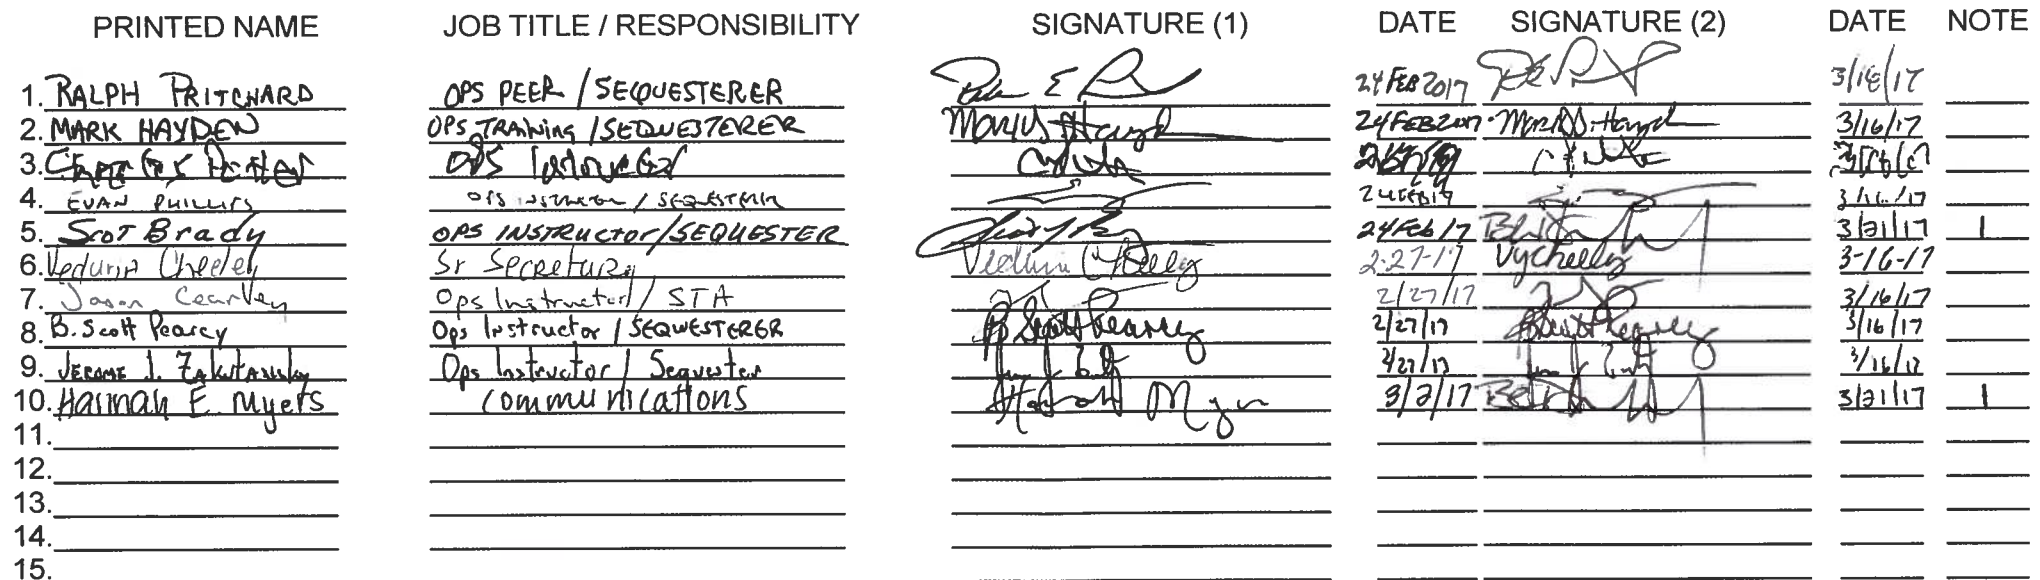 PRINTED NAME JOB TITLE / RESPONSIBILITY SIGNATURE (1) DATE SIGNATURE (2) DATE NOTE
1. RALPH PRITCHARD OPS PEER / SEQUESTERER 24 FEB 2017 3/16/17
2. MARK HAYDEN OPS TRAINING / SEQUESTERER 24 FEB 2017 3/16/17
3. OPS
4. EVAN PHILLIPS OPS INSTRUCTOR / 24 FEB 17 3/16/17
5. Scot Brady OPS INSTRUCTOR / SEQUESTER 24 Feb 17 3/21/17 1
6. Sr Secretary 2-27-17 3-16-17
7. Jason Ops Instructor / STA 2/27/17 3/16/17
8. B. Scott Pearcy Ops Instructor / SEQUESTERER B Scott Pearcy 2/27/17 B Scott Pearcy 3/16/17
9. JEROME J. Ops Instructor / 2/27/17 3/16/17
10. Hannah E Myers Communications Hannah Myers 3/2/17 3/21/17 1
11.
12.
13.
14.
15.